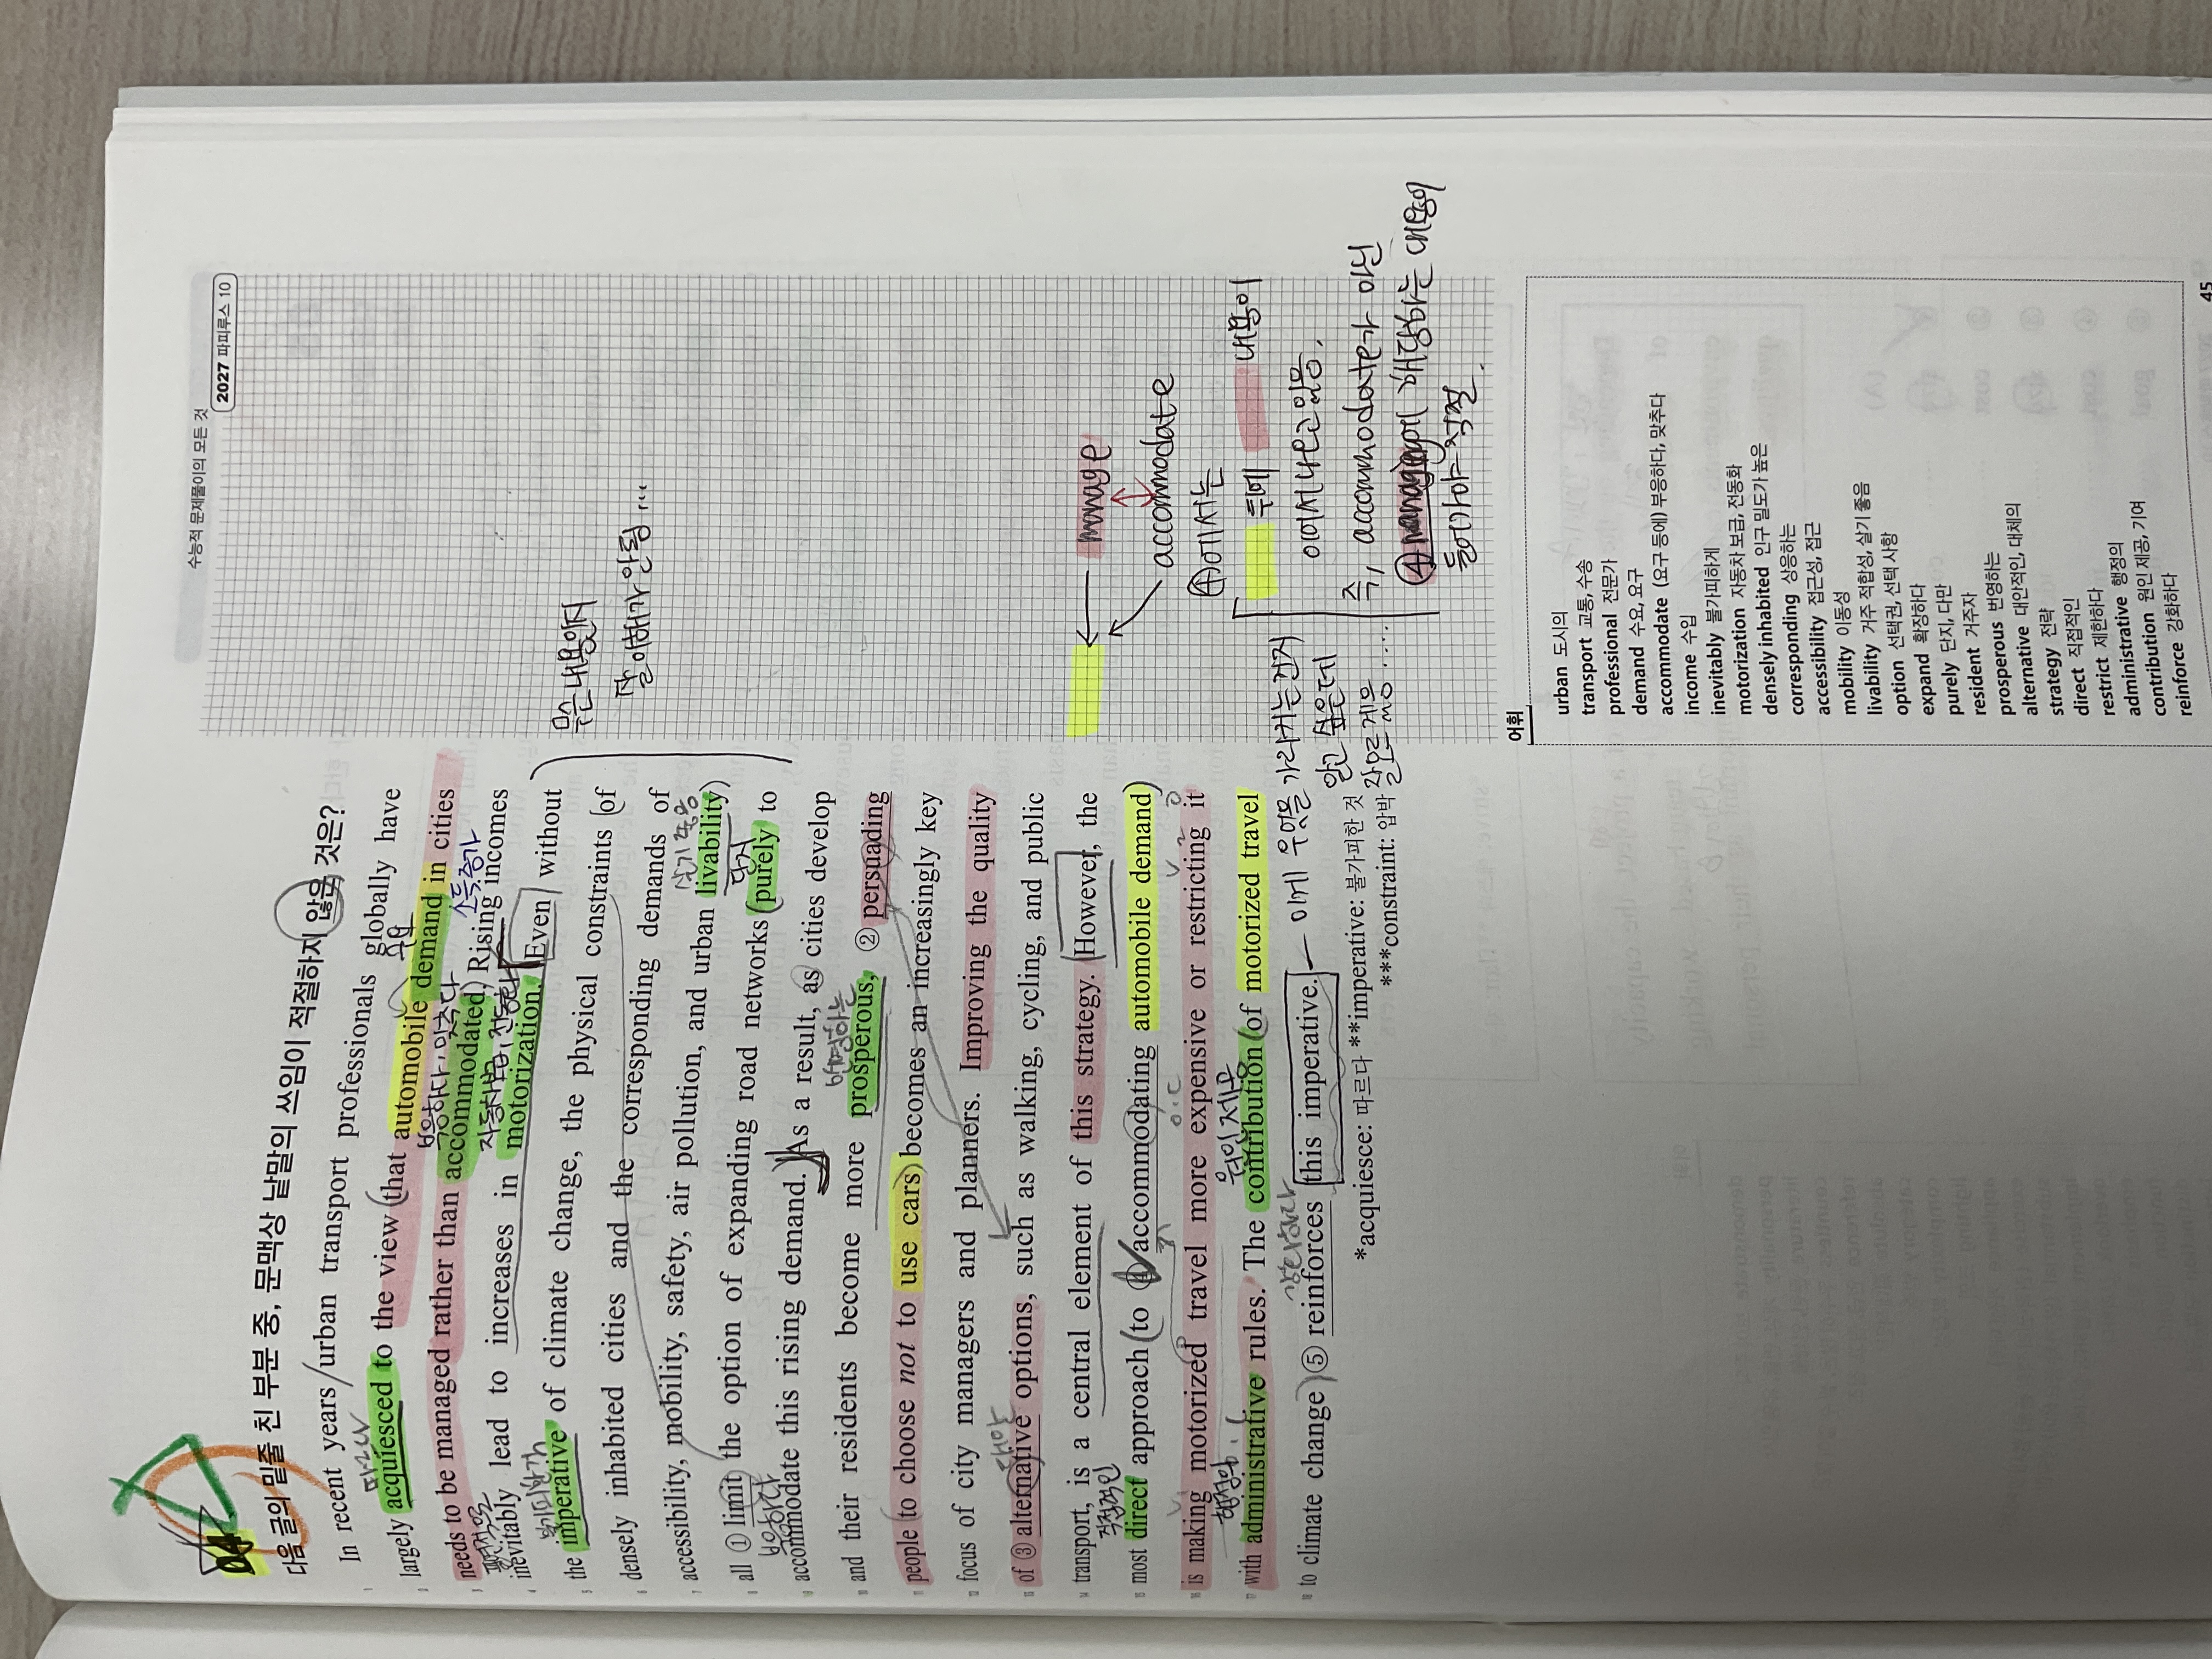 수능적 문제풀이의 모든 것
2027 파피루스 10
04
다음 글의 밑줄 친 부분 중, 문맥상 낱말의 쓰임이 적절하지 않은 것은?
In recent years urban transport professionals globally have
따르다
수요
largely acquiesced to the view that automobile demand in cities
부응하다, 맞추다
소득증가
needs to be managed rather than accommodated. Rising incomes
불가피하게
자동차 보급, 전동화
inevitably lead to increases in motorization. Even without
불가피한 것
the imperative of climate change, the physical constraints of
densely inhabited cities and the corresponding demands of
살기 좋음
accessibility, mobility, safety, air pollution, and urban livability
단지
all ① limit the option of expanding road networks purely to
부응하다
accommodate this rising demand. As a result, as cities develop
번영하는
and their residents become more prosperous, ② persuading
people to choose not to use cars becomes an increasingly key
focus of city managers and planners. Improving the quality
대안
of ③ alternative options, such as walking, cycling, and public
transport, is a central element of this strategy. However, the
직접적인
most direct approach to ④ accommodating automobile demand
is making motorized travel more expensive or restricting it
행정의
원인 제공
with administrative rules. The contribution of motorized travel
강화하다
to climate change ⑤ reinforces this imperative.
*acquiesce: 따르다 **imperative: 불가피한 것
***constraint: 압박
무슨 내용인지
잘 이해가 안 됨...
manage
accommodate
④에서는
뒤에 내용이
이어서 나오고 있음.
즉, accommodate가 아닌
④ manage에 해당하는 내용이
들어가야 적절.
이게 무엇을 가리키는 건지
알고 싶은데
잘 모르겠음....
어휘
urban 도시의
transport 교통, 수송
professional 전문가
demand 수요, 요구
accommodate (요구 등에) 부응하다, 맞추다
income 수입
inevitably 불가피하게
motorization 자동차 보급, 전동화
densely inhabited 인구 밀도가 높은
corresponding 상응하는
accessibility 접근성, 접근
mobility 이동성
livability 거주 적합성, 살기 좋음
option 선택권, 선택 사항
expand 확장하다
purely 단지, 다만
resident 거주자
prosperous 번영하는
alternative 대안적인, 대체의
strategy 전략
direct 직접적인
restrict 제한하다
administrative 행정의
contribution 원인 제공, 기여
reinforce 강화하다
45